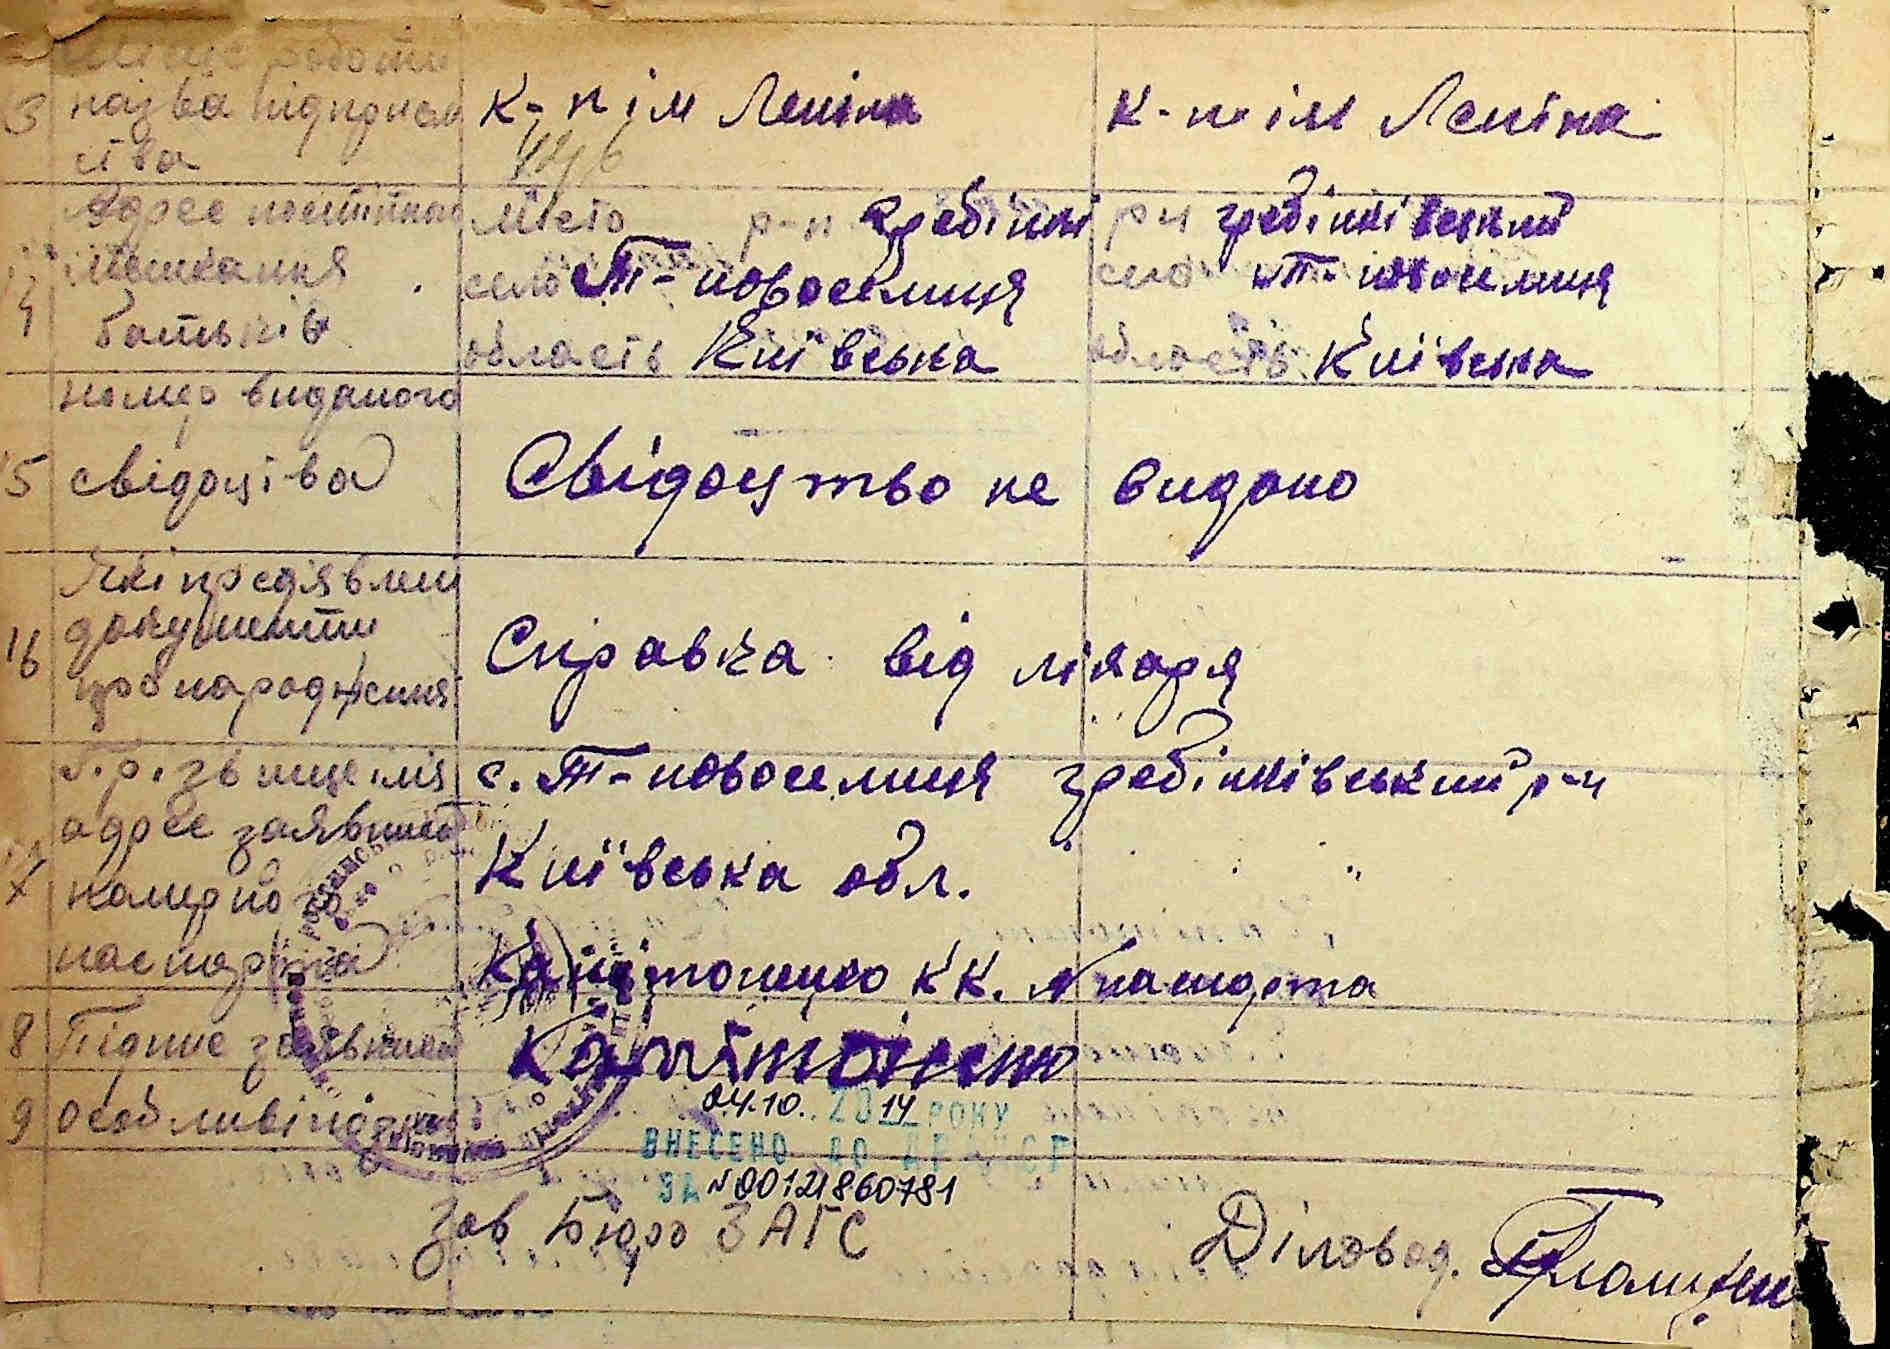 Місце роботи
13 назва підприєм
ства
к-п ім Леніна
к-п ім Леніна
Адрес постійного
14 мешкання
батьків
місто р-н Гребінкі
село Т-новоселиця
область Київська
р-н гребінківський
село Т-новоселиця
область Київська
номер виданого
15 свідоцтва
Свідоцтво не видано
Які предявлені
16 документи
про народження
Справка від лікаря
Прізвище імя
адрес заявника
номер його
паспорта
с. Т-новоселиця гребінківський р-н
Київська обл.
Капітоненко К К. № пашпорта
8 Підпис заявника
Капітоненко
9 особливі
04.10. 2014 РОКУ
ВНЕСЕНО ДО
ЗА №00121860781
Зав Бюро ЗАГС
Діловод.